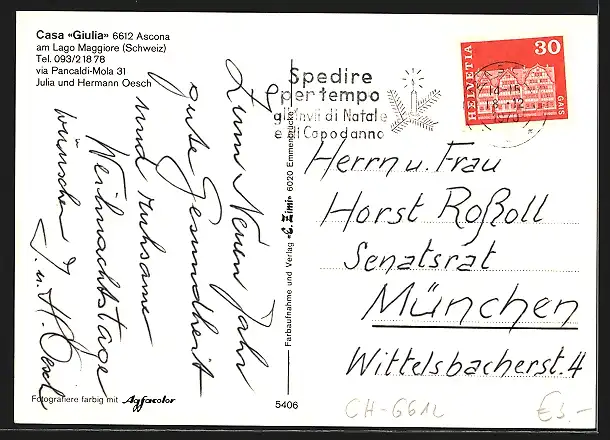 Casa «Giulia» 6612 Ascona
am Lago Maggiore (Schweiz)
Tel. 093/21878
via Pancaldi-Mola 31
Julia und Hermann Oesch
Zum Neuen Jahr
gute Gesundheit
und ruhsame
Weihnachtstage
wünschen
J. u. H. Oesch
Fotografiere farbig mit Agfacolor
Farbaufnahme und Verlag «C. Zimi» 6020 Emmenbrücke
5406
Spedire
per tempo
gli invii di Natale
e di Capodanno
HELVETIA
30
GAIS
Herrn u. Frau
Horst Roßoll
Senatsrat
München
Wittelsbacherst. 4
CH-6612
€3.-